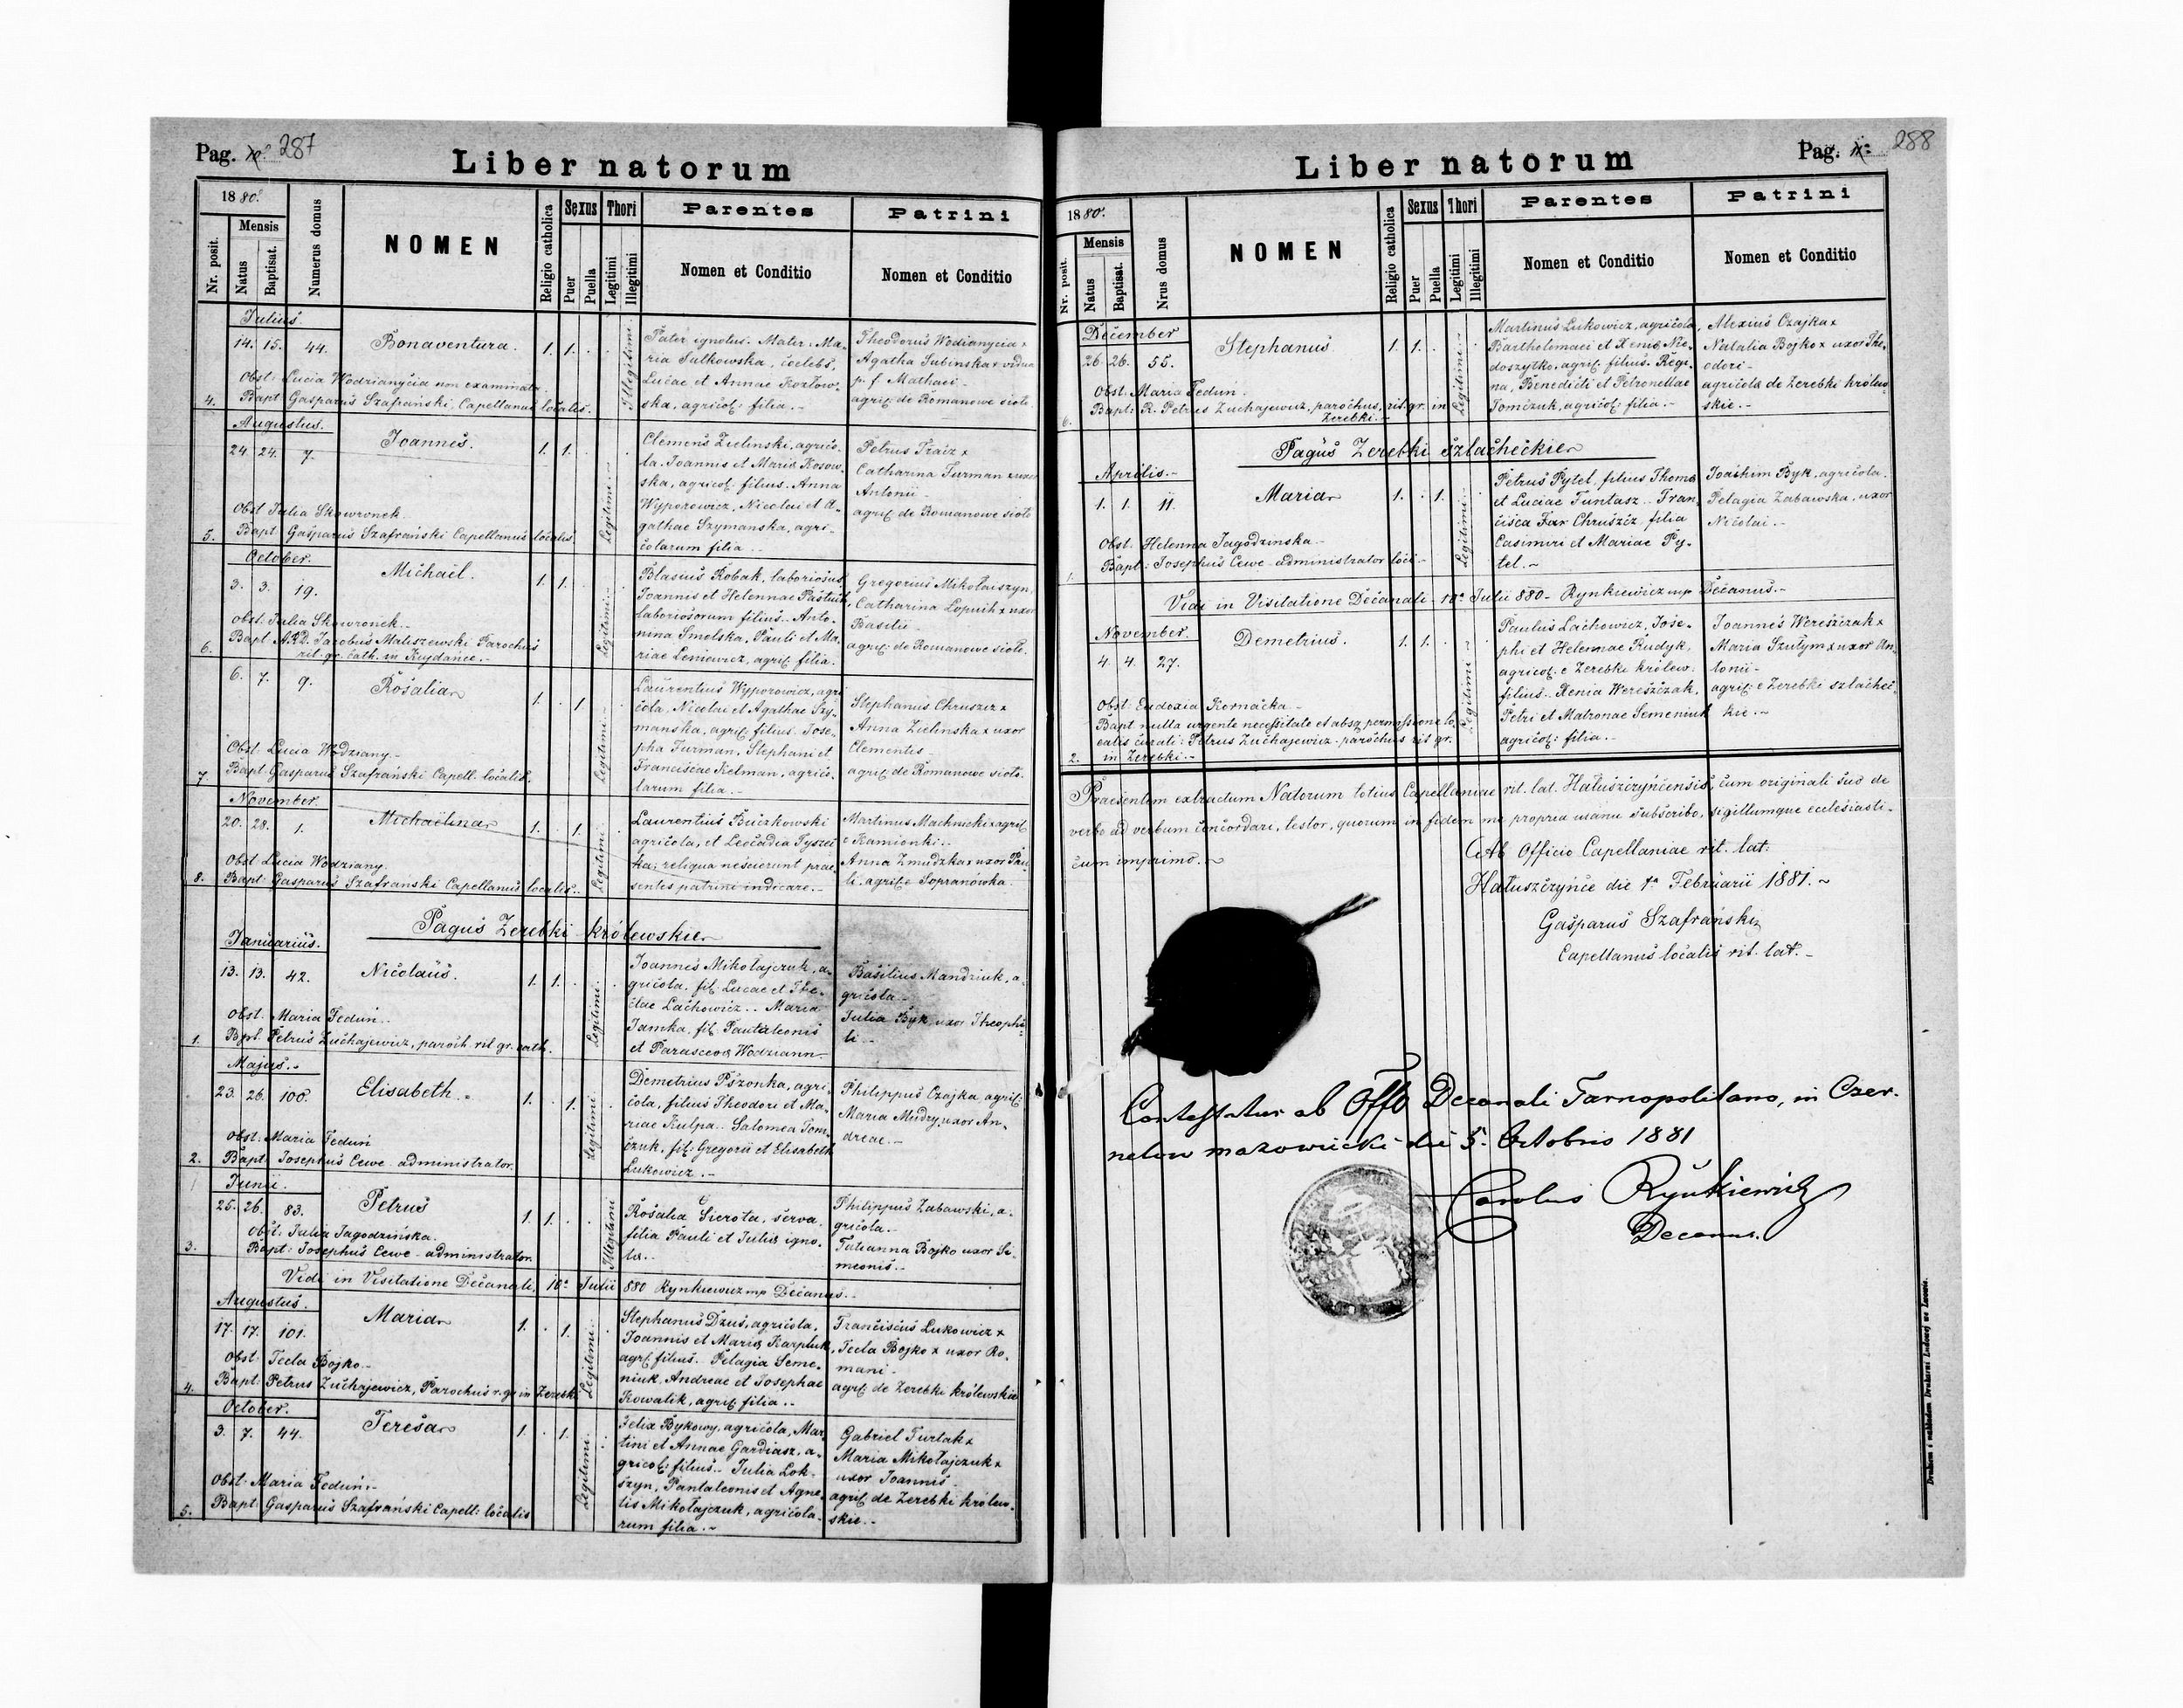 Pag. 287
Liber natorum
1880.
Nr. posit.
Mensis
Natus
Baptisat.
Numerus domus
NOMEN
Religio catholica
Sexus
Puer
Puella
Thori
Legitimi
Illegitimi
Parentes
Nomen et Conditio
Patrini
Nomen et Conditio
Julius.
14. 15. 44. Bonaventura. 1. 1.
Illegitimi
Pater ignotus. Mater: Ma-
ria Sulkowska, coelebs,
Lucae et Annae Kozłow-
ska, agricol: filia.-
Theodorus Wodianycia x
Agatha Subinska x vidua
p. f. Mathaei -
agric: de Romanowe sioło.
Obst: Lucia Wodzianycia non examinata
4. Bapt: Gasparus Szafrański, Capellanus localis.
Augustus.
24. 24. 7. Joannes. 1. 1.
Legitimi.
Clemens Zielinski, agrico-
la, Joannis et Mariae Kosow-
ska, agricol: filius. Anna
Wyporowicz, Nicolai et A-
gathae Szymanska, agri-
colarum filia..
Petrus Fraiz x
Catharina Furman x uxor
Antonii -
agric: de Romanowe sioło
Obst: Julia Skowronek.
5. Bapt: Gasparus Szafrański Capellanus localis.
October.
3. 3. 19. Michaël. 1. 1.
Legitimi.
Blasius Robak, laboriosus,
Joannis et Helennae Pastuch,
laboriosorum filius. Anto-
nina Smolska, Pauli et Ma-
riae Leniewicz, agric: filia.
Gregorius Mikołaiszyn,
Catharina Łopuch x uxor
Basilii -
agric: de Romanowe sioło.
obst: Julia Skowronek.
6. Bapt: ARD. Jacobus Maliszewski Parochus
rit. gr. cath. in Kujdańce.-
6. 7. 9. Rosalia 1. 1.
Legitimi.
Laurentius Wyporowicz, agri-
cola, Nicolai et Agathae Szy-
manska, agric: filius. Jose-
pha Furman, Stephani et
Franciscae Kelman, agrico-
larum filia.-
Stephanus Chruszcz x
Anna Zielinska x uxor
Clementis -
agric: de Romanowe sioło.
Obst: Lucia Wodziany -
7. Bapt: Gasparus Szafrański Capell: localis.
November.
20. 28. 1. Michaëlina 1. 1.
Legitimi.
Laurentius Buczkowski
agricola, et Leocadia Tyszec-
ka, reliqua nescierunt prae-
sentes patrini indicare.-
Martinus Machnicki x agric:
e Kamionki..
Anna Zmudzka x uxor Pau-
li, agric: e Sopranówka.
Obst: Lucia Wodziany.
8. Bapt: Gasparus Szafrański Capellanus localis.
Pagus Zerebki królewskie
Januarius.
13. 13. 42. Nicolaüs. 1. 1.
Legitimi.
Joannes Mikołajczuk, a-
gricola, fil: Lucae et The-
clae Lachowicz.. Maria
Jamka, fil: Pantaleonis
et Parascevae Wodziann
Basilius Mandziuk, a-
gricola -
Julia Byk, uxor Theophi-
li -
obst: Maria Fedun..
1. Bpt: Petrus Zuchajewicz, paroch. rit. gr. cath.
Majus.
23. 26. 100. Elisabeth. 1. 1.
Legitimi.
Demetrius Pszonka, agri-
cola, filius Theodori et Ma-
riae Kulpa.. Salomea Tom-
czuk, fil: Gregorii et Elisabeth
Lukowicz.-
Philippus Czajka, agric:
Maria Mudry, uxor An-
dreae.-
obst: Maria Fedun
2. Bapt: Josephus Cewe - administrator.
Junii.
25. 26. 83. Petrus 1. 1.
Illegitimi
Rosalia Sierota, serva,
filia Pauli et Juliae igno-
ta.-
Philippus Zabawski, a-
gricola.-
Tatianna Bojko uxor Si-
meonis.-
obst: Julia Jagodzińska.
3. Bapt: Josephus Cewe - administrator.
Vidi in Visitatione Decanali, 10a Julii 880 Rynkiewicz mp Decanus.
Augustus.
17. 17. 101. Maria 1. 1.
Legitimi.
Stephanus Dzus, agricola,
Joannis et Mariae Karpluk,
agric: filius. Pelagia Seme-
niuk, Andreae et Josephae
Kowalik, agric: filia..
Franciscus Lukowicz x
Tecla Bojko x uxor Ro-
mani -
agric: de Zerebki królewskie
obst: Tecla Bojko -
4. Bapt: Petrus Zuchajewicz, Parochus r. gr. in Zerebki
October.
3. 7. 44. Teresa 1. 1.
Legitimi.
Felix Bykowy, agricola, Mar-
tini et Annae Gardiasz, a-
gricol: filius.. Julia Lok-
szyn, Pantaleonis et Agne-
tis Mikołajczuk, agricola-
rum filia.-
Gabriel Furtak x
Maria Mikołajczuk x
uxor Joannis -
agric: de Zerebki królew-
skie.-
Obst: Maria Fedun.-
5. Bapt: Gasparus Szafrański Capell: localis
Pag. 288
Liber natorum
1880.
Nr. posit.
Mensis
Natus
Baptisat.
Nrus domus
NOMEN
Religio catholica
Sexus
Puer
Puella
Thori
Legitimi
Illegitimi
Parentes
Nomen et Conditio
Patrini
Nomen et Conditio
December
26. 26. 55. Stephanus 1. 1.
Legitimi.
Martinus Lukowicz, agricola,
Bartholomaei et Xeniae Nie-
doszytko, agric: filius. Regi-
na, Benedicti et Petronellae
Tomczuk, agricol: filia.-
Alexius Czajka x
Natalia Bojko x uxor The-
odori -
agricola de Zerebki królew-
skie.-
Obst: Maria Fedun.
6. Bapt: R. Petrus Zuchajewicz, parochus, rit. gr. in
Zerebki.-
Pagus Zerebki szlacheckie
Aprilis.-
1. 1. 11. Maria 1. 1.
Legitimi.
Petrus Pytel, filius Thomae
et Luciae Funtasz.. Fran-
cisca Far Chruszcz, filia
Casimiri et Mariae Py-
tel.-
Joachim Byk, agricola.
Pelagia Zabawska, uxor
Nicolai.-
Obst: Helenna Jagodzinska -
1. Bapt: Josephus Cewe - administrator loci.-
Vidi in Visitatione Decanali 10a Julii 880 - Rynkiewicz mp Decanus.-
November
4. 4. 27. Demetrius. 1. 1.
Legitimi
Paulus Lachowicz, Jose-
phi et Helennae Rudyk,
agricol: e Zerebki królew.
filius.. Xenia Wereszczak,
Petri et Matronae Semeniuk
agricol: filia.-
Joannes Wereszczak x
Maria Szutym x uxor An-
tonii -
agric: e Zerebki szlachec-
kie.-
Obst: Eudoxia Kornacka -
Bapt: nulla urgente necessitate et absq permissione lo-
calis curati: Petrus Zuchajewicz parochus rit. gr.
2. in Zerebki.-
Praesentem extractum Natorum totius Capellaniae rit. lat. Hałuszczyńcensis, cum originali suo de
verbo ad verbum concordari, testor, quorum in fidem me propria manu subscribo, sigillumque ecclesiasti-
cum imprimo.-
Ab Officio Capellaniae rit. lat:
Hałuszczyńce die 1a Februarii 1881.-
Gasparus Szafrański
Capellanus localis rit. lat.-
Contestatur ab Offo Decanali Tarnopolitano, in Czer-
nelow mazowiecki die 5. Octobris 1881
Carolus Rynkiewicz
Decanus.
Drukiem i nakładem Drukarni Ludowej we Lwowie.